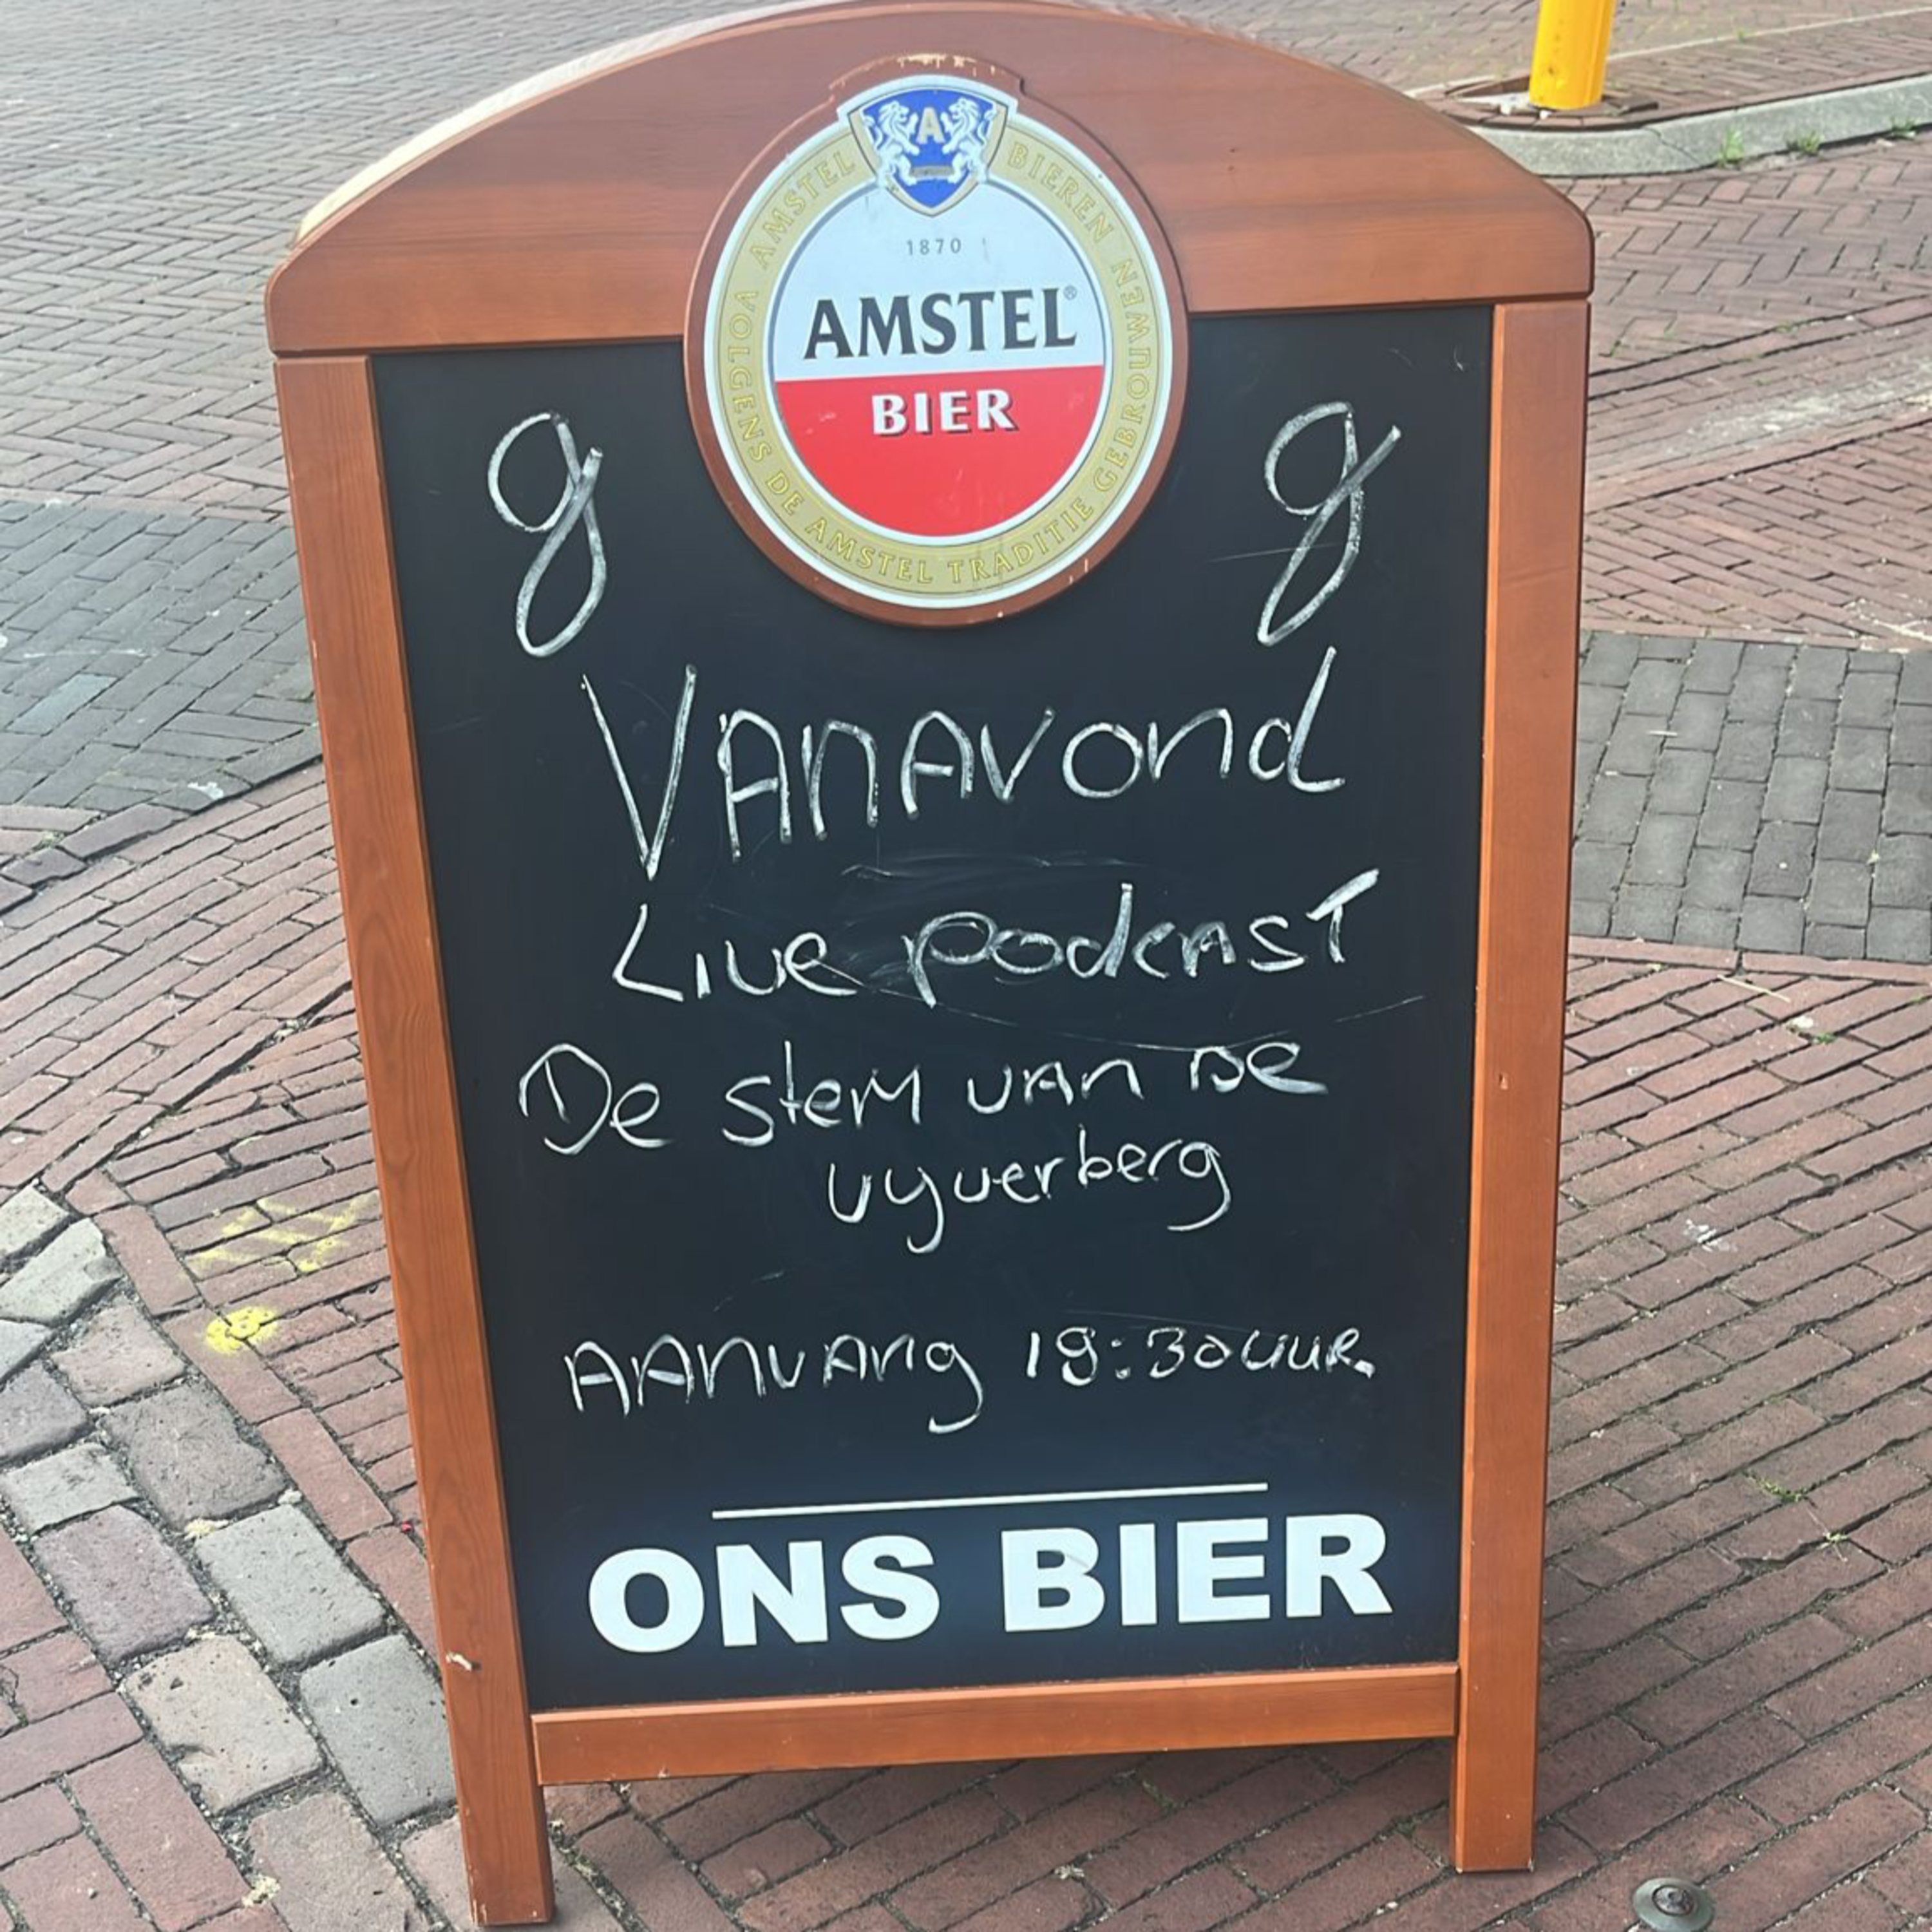 A
AMSTEL BIEREN VOLGENS DE AMSTEL TRADITIE GEBROUWEN
1870
AMSTEL®
BIER
g g
VANAVOND
Live podcast
De stem van de
vyverberg
AANVANG 19:30 uur.
ONS BIER